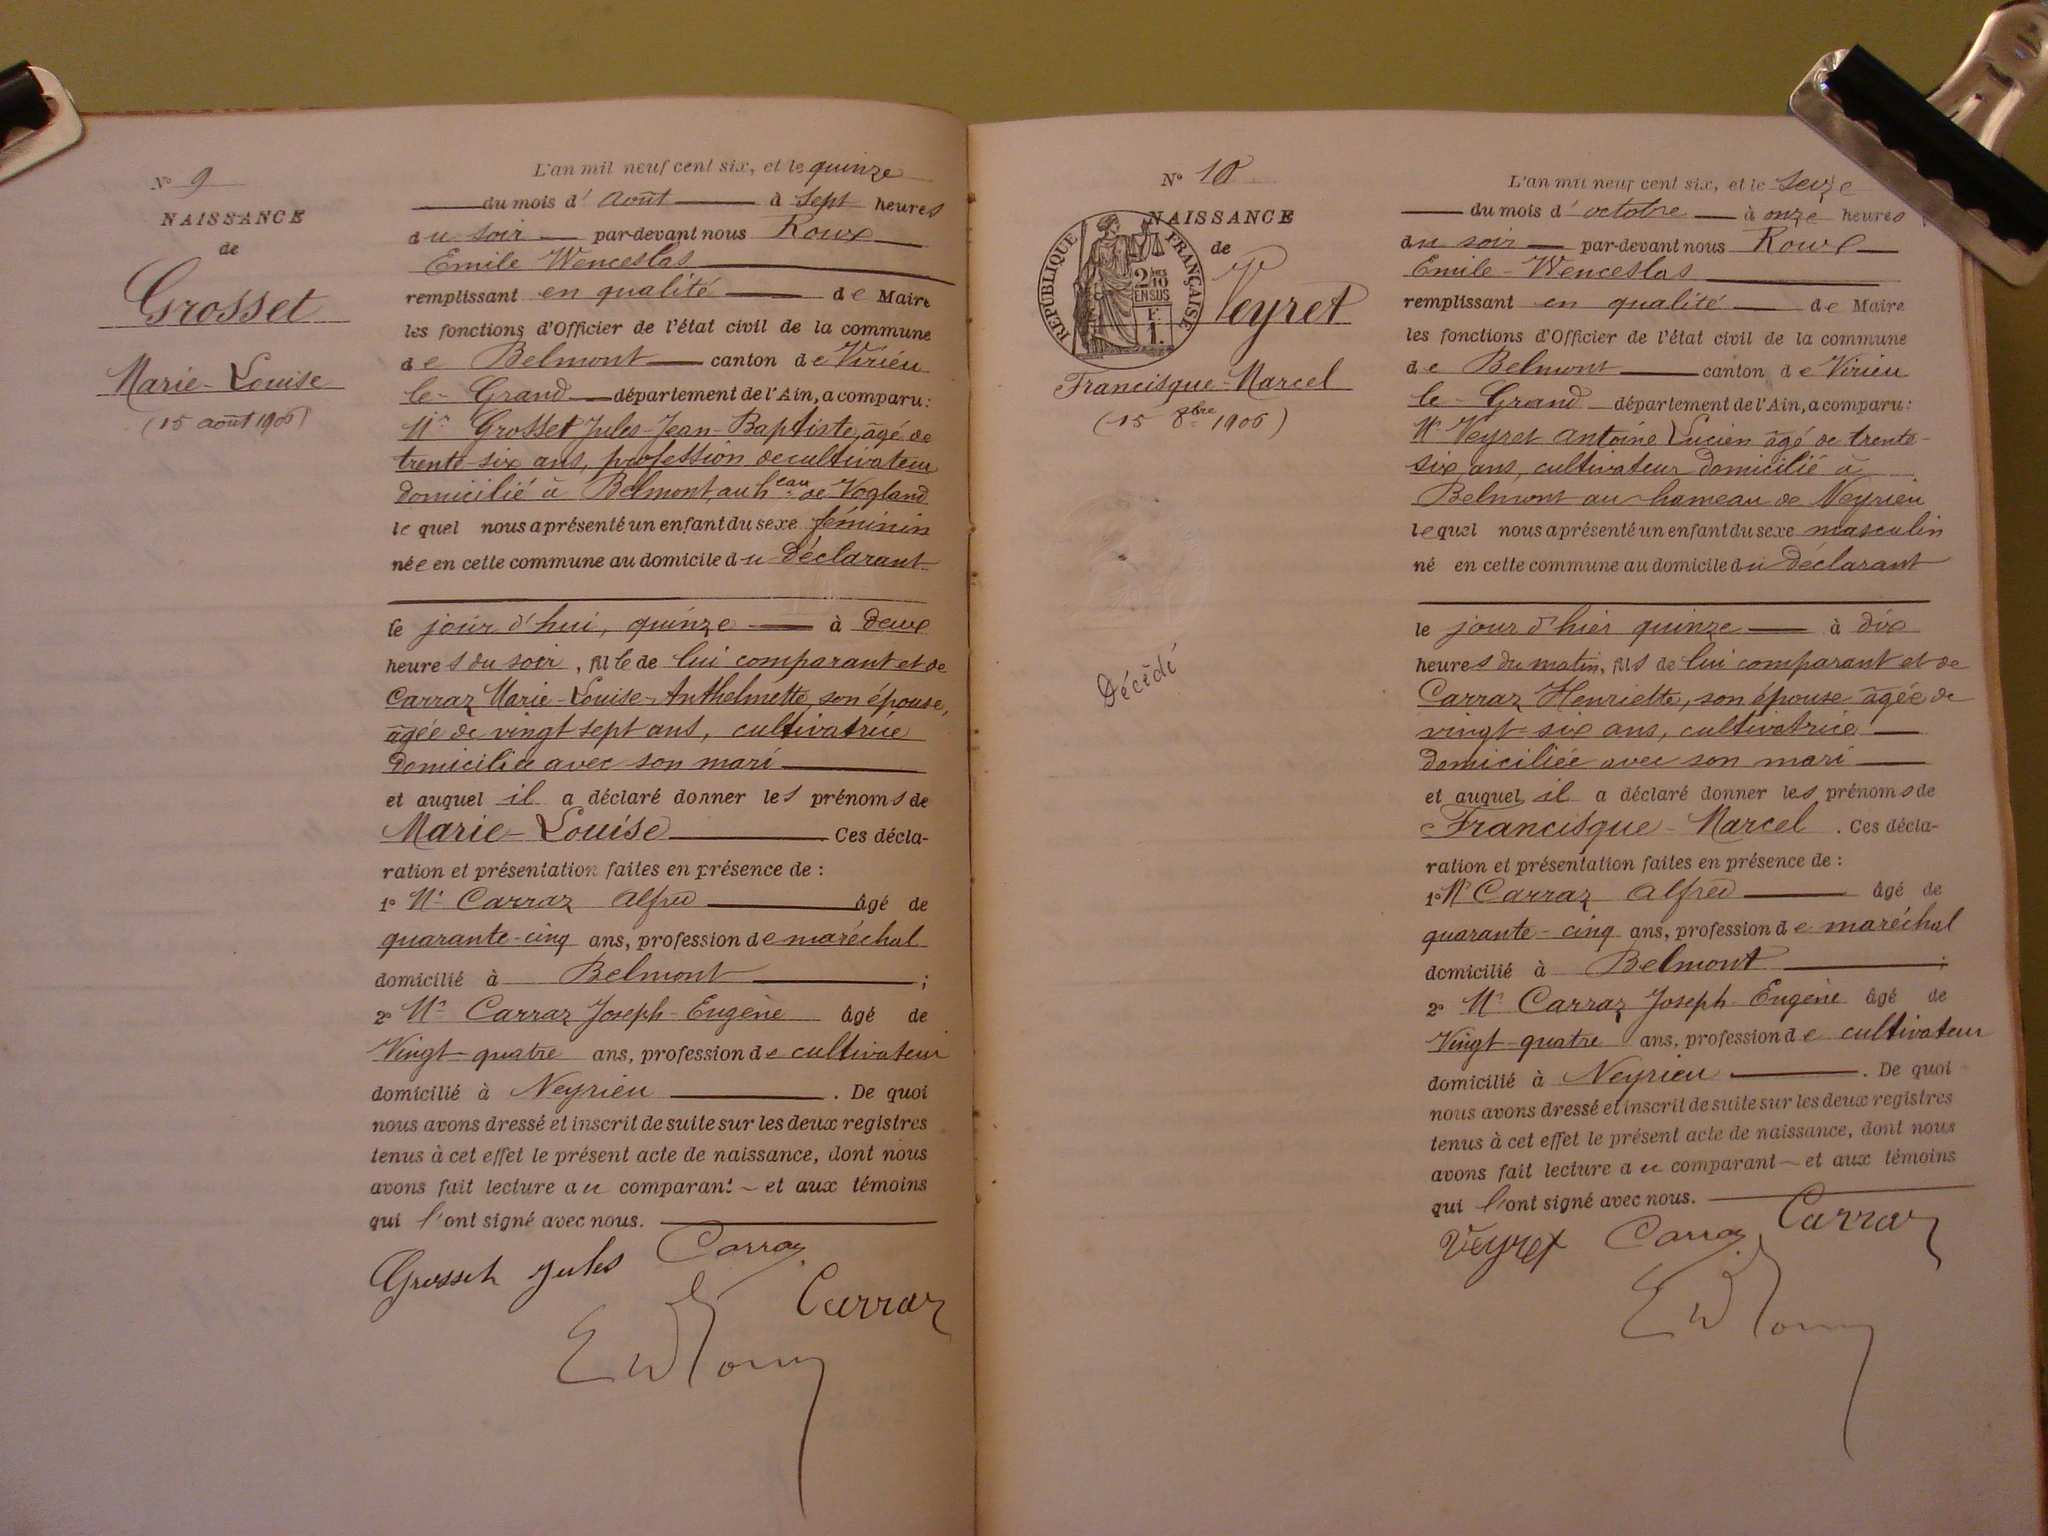 N° 9
NAISSANCE
de
Grosset
Marie-Louise
(15 août 1906)
L'an mil neuf cent six, et le quinze
du mois d'août à sept heures
du soir par-devant nous Roux
Emile Wenceslas
remplissant en qualité de Maire
les fonctions d'Officier de l'état civil de la commune
de Belmont canton de Virieu
le-Grand département de l'Ain, a comparu:
Mr Grosset Jules-Jean-Baptiste, âgé de
trente-six ans, profession de cultivateur
domicilié à Belmont au heau de Vogland
lequel nous a présenté un enfant du sexe féminin
née en cette commune au domicile du déclarant
le jour d'hui, quinze à deux
heures du soir, fille de lui comparant et de
Carraz Marie-Louise-Anthelmette, son épouse,
âgée de vingt sept ans, cultivatrice
domiciliée avec son mari
et auquel il a déclaré donner les prénoms de
Marie-Louise Ces décla-
ration et présentation faites en présence de :
1° Mr Carraz Alfred âgé de
quarante-cinq ans, profession de maréchal
domicilié à Belmont ;
2° Mr Carraz Joseph-Eugène âgé de
Vingt-quatre ans, profession de cultivateur
domicilié à Neyrieu . De quoi
nous avons dressé et inscrit de suite sur les deux registres
tenus à cet effet le présent acte de naissance, dont nous
avons fait lecture au comparant et aux témoins
qui l'ont signé avec nous.
Grosset Jules Carraz
Carraz
N° 10
NAISSANCE
de
RÉPUBLIQUE FRANÇAISE
2/10
EN SUS
Veyret
Francisque-Marcel
(15 8bre 1906)
Décédé
L'an mil neuf cent six, et le seize
du mois d'octobre à onze heures
du soir par-devant nous Roux
Emile-Wenceslas
remplissant en qualité de Maire
les fonctions d'Officier de l'état civil de la commune
de Belmont canton de Virieu
le-Grand département de l'Ain, a comparu:
Mr Veyret Antoine Lucien âgé de trente-
six ans, cultivateur domicilié à
Belmont au hameau de Neyrieu
lequel nous a présenté un enfant du sexe masculin
né en cette commune au domicile du déclarant
le jour d'hier quinze à dix
heures du matin, fils de lui comparant et de
Carraz Henriette, son épouse âgée de
vingt-six ans, cultivatrice
domiciliée avec son mari
et auquel il a déclaré donner les prénoms de
Francisque-Marcel . Ces décla-
ration et présentation faites en présence de :
1° Mr Carraz Alfred âgé de
quarante-cinq ans, profession de maréchal
domicilié à Belmont ;
2° Mr Carraz Joseph-Eugène âgé de
Vingt-quatre ans, profession de cultivateur
domicilié à Neyrieu . De quoi
nous avons dressé et inscrit de suite sur les deux registres
tenus à cet effet le présent acte de naissance, dont nous
avons fait lecture au comparant et aux témoins
qui l'ont signé avec nous.
Veyret Carraz Carraz